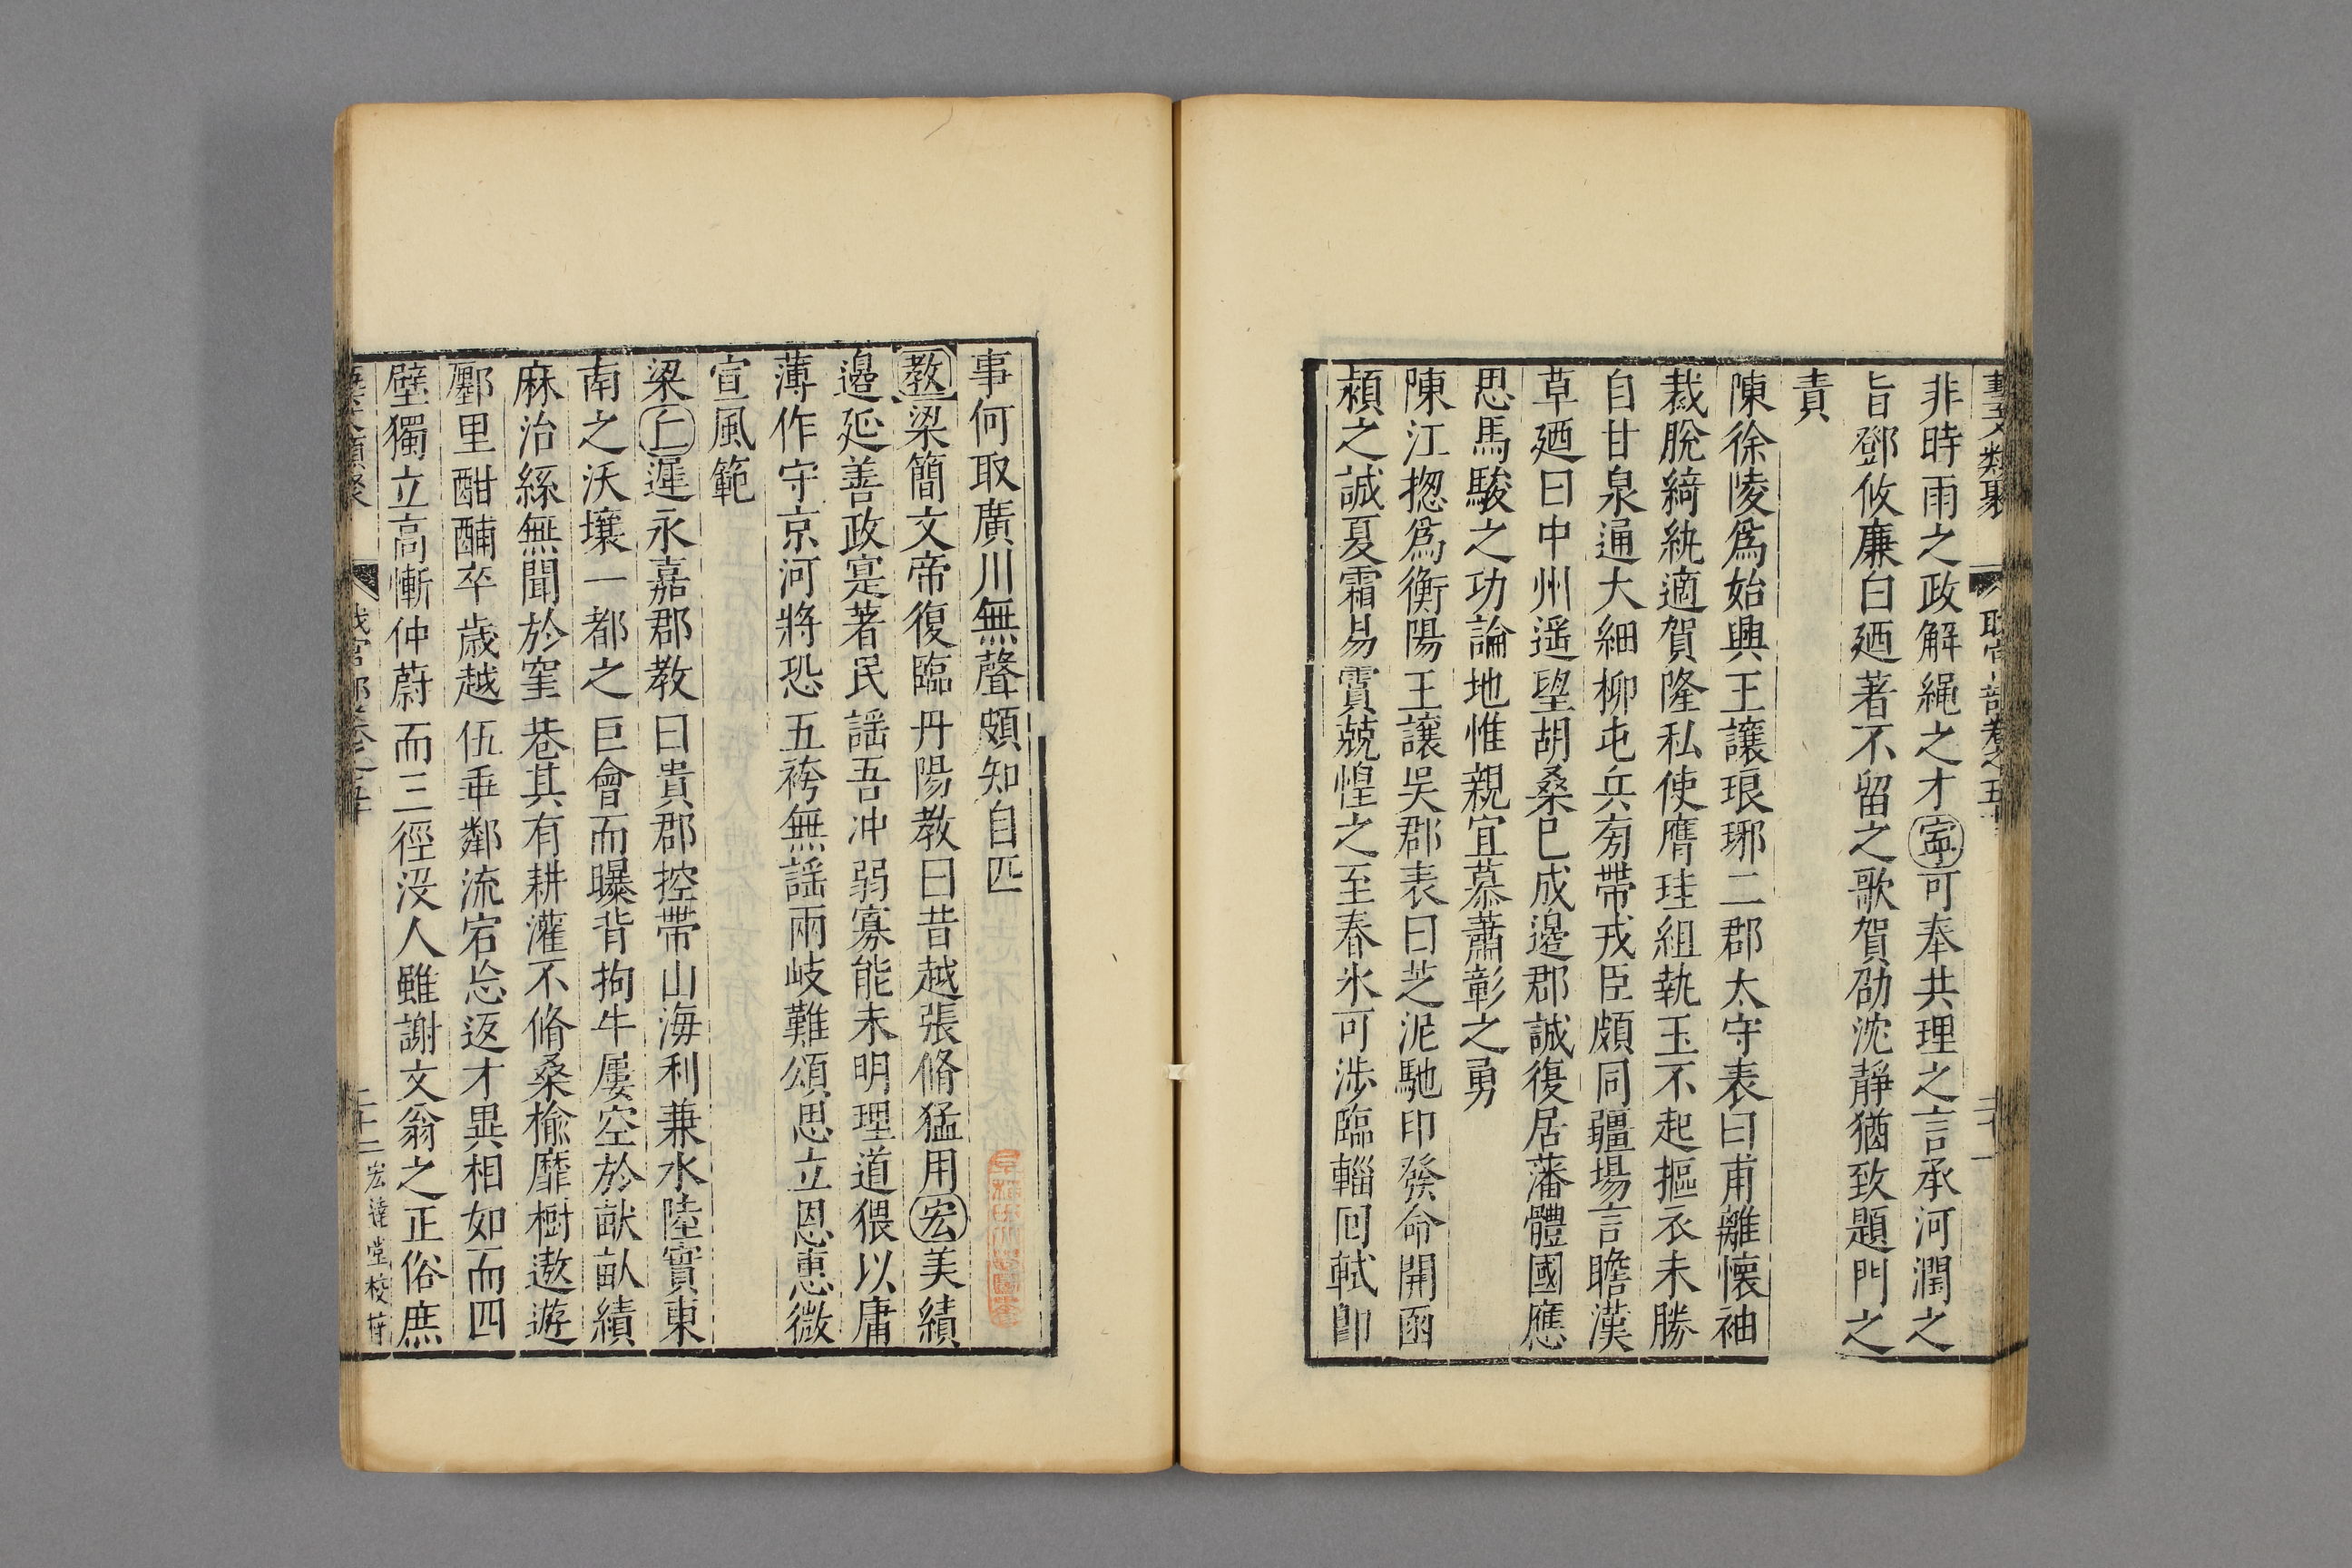 藝文類聚 職官部卷之五十
非時雨之政解繩之才寧可奉共理之言承河潤之
旨鄧攸廉白廼著不留之歌賀劭沈靜猶致題門之
責
陳徐陵爲始興王讓琅琊二郡太守表曰甫離懷袖
裁脫綺紈適賀隆私使膺珪組執玉不起摳衣未勝
自甘泉通大細柳屯兵旁帶戎臣頗同疆場言瞻漢
草廼曰中州遥望胡桑巳成邊郡誠復居藩體國應
思馬駿之功論地惟親宜慕蕭彰之勇
陳江揔爲衡陽王讓吳郡表曰芝泥馳印發命開函
潁之誠夏霜易霣兢惶之至春氷可涉臨輜囘軾卽
事何取廣川無聲頗知自匹
教梁簡文帝復臨丹陽教曰昔越張脩猛用宏美績
邊延善政寔著民謡吾冲弱寡能未明理道猥以庸
薄作守京河將恐五袴無謡兩岐難頌思立恩惠微
宣風範
梁丘遲永嘉郡教曰貴郡控帶山海利兼水陸實東
南之沃壤一都之巨會而曝背拘牛屢空於畎畝績
麻治絲無聞於窐巷其有耕灌不脩桑楡靡樹遨遊
鄽里酣酺卒歳越伍乖鄰流宕忘返才異相如而四
壁獨立高慚仲蔚而三徑沒人雖謝文翁之正俗庶
藝文類聚 職官部卷之五十 二十二 宏達堂校苻